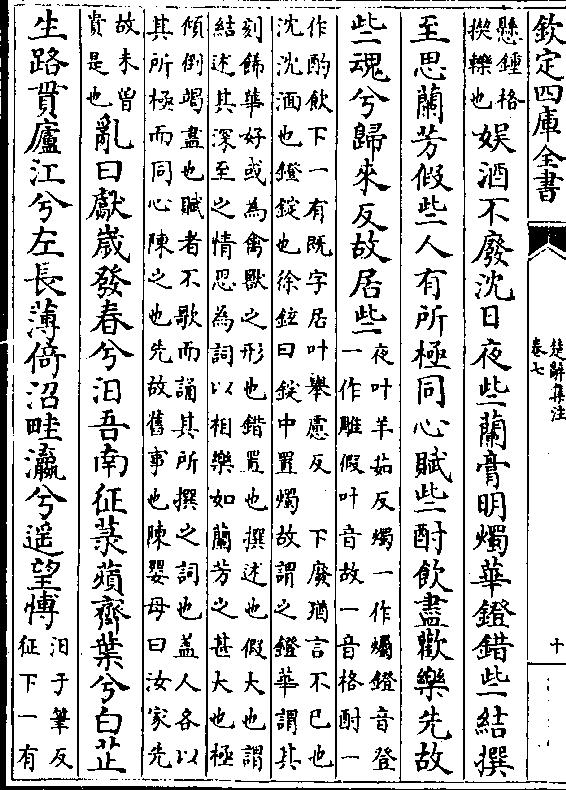 欽定四庫全書
楚辭集注
卷七
十
懸鍾格
揳轢也
娯酒不廢沈日夜些蘭膏明燭華鐙錯些結撰
至思蘭芳假些人有所極同心賦些酎飲盡歡樂先故
些魂兮歸來反故居些
夜叶羊茹反燭一作爥鐙音登
一作雕假叶音故一音格酎一
作酌飲下一有既字居叶舉慮反　下廢猶言不已也
沈沈湎也鐙錠也徐鉉曰錠中置燭故謂之鐙華謂其
刻飾華好或為禽獸之形也錯置也撰述也假大也謂
結述其深至之情思為詞以相樂如蘭芳之甚大也極
傾倒竭盡也賦者不歌而誦其所撰之詞也葢人各以
其所極而同心陳之也先故舊事也陳嬰母曰汝家先
故未曾
貴是也
亂曰獻歲發春兮汩吾南征菉蘋齊葉兮白芷
生路貫廬江兮左長薄倚沼畦瀛兮遥望愽
汨于筆反
征下一有